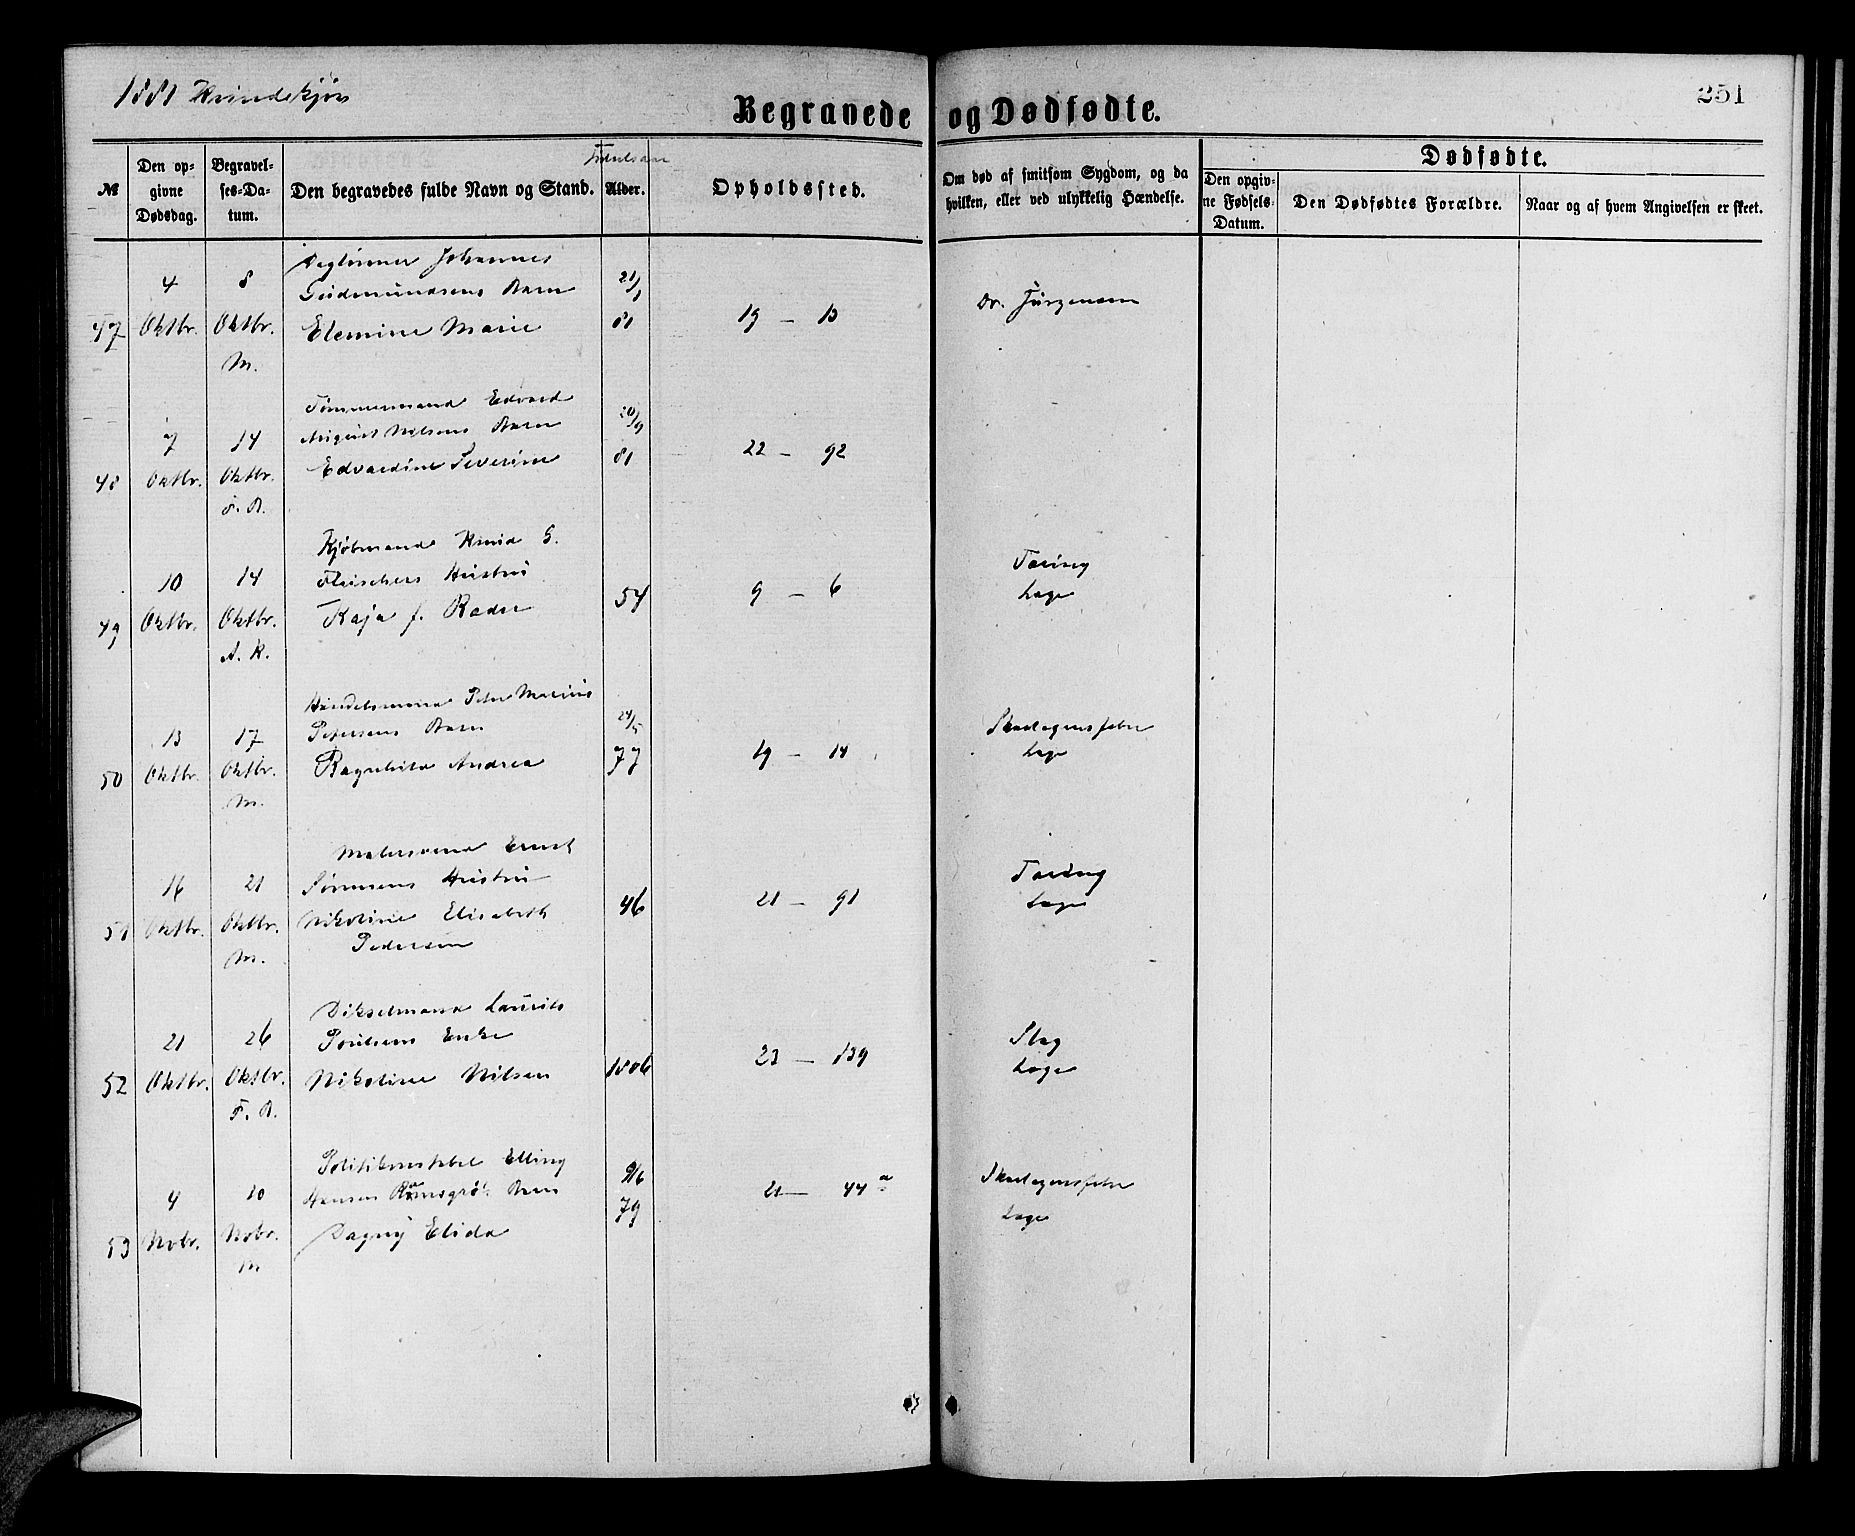 1881 Kvindekjøn
251
Begravede og Dødfødte.
№
Den opgivne Dødsdag.
Begravelses-Datum.
Den begravedes fulde Navn og Stand.
Alder.
Opholdssted.
Om død af smitsom Sygdom, og da hvilken, eller ved ulykkelig Hændelse.
Dødfødte.
Den opgivne Fødsels-Datum.
Den Dødfødtes Forældre.
Naar og af hvem Angivelsen er skeet.
Daglønner Johannes
4 8 Gudmundsens Barn 21/1 Dr. Jürgensen
47 Oktbr. Oktbr. Elemine Marie 81 19 — 13
M.
Tømmermand Edvard
7 14 August Nilsens Barn 20/9
48 Oktbr. Oktbr. Edvardine Severine 81 22 — 92
F. B.
Kjøbmand Knud G.
10 14 Fleischers Hustru Tæring
49 Oktbr. Oktbr. Kaja f. Rader 54 9 — 6 Læge
A. K.
Handelsmand Peder Marius
13 17 Petersens Barn 24/5 Skarlagensfeber
50 Oktbr. Oktbr. Ragnhild Andrea 77 19 — 14 Læge
M.
Malersvend Ernst
16 21 Sørensens Hustru Tæring
51 Oktbr. Oktbr. Nikoline Elisabeth 46 21 — 91 Læge
M. Pedersen
Dikselmand Laurits
21 26 Poulsens Enke Slag
52 Oktbr. Oktbr. Nikoline Nilsen 1806 23 — 139 Læge
F. B.
Politikonstabel Elling
4 10 Hansen Barn 9/6 Skarlagensfeber
53 Novbr. Novbr. Dagny Elida 79 21 — 44 a Læge
M